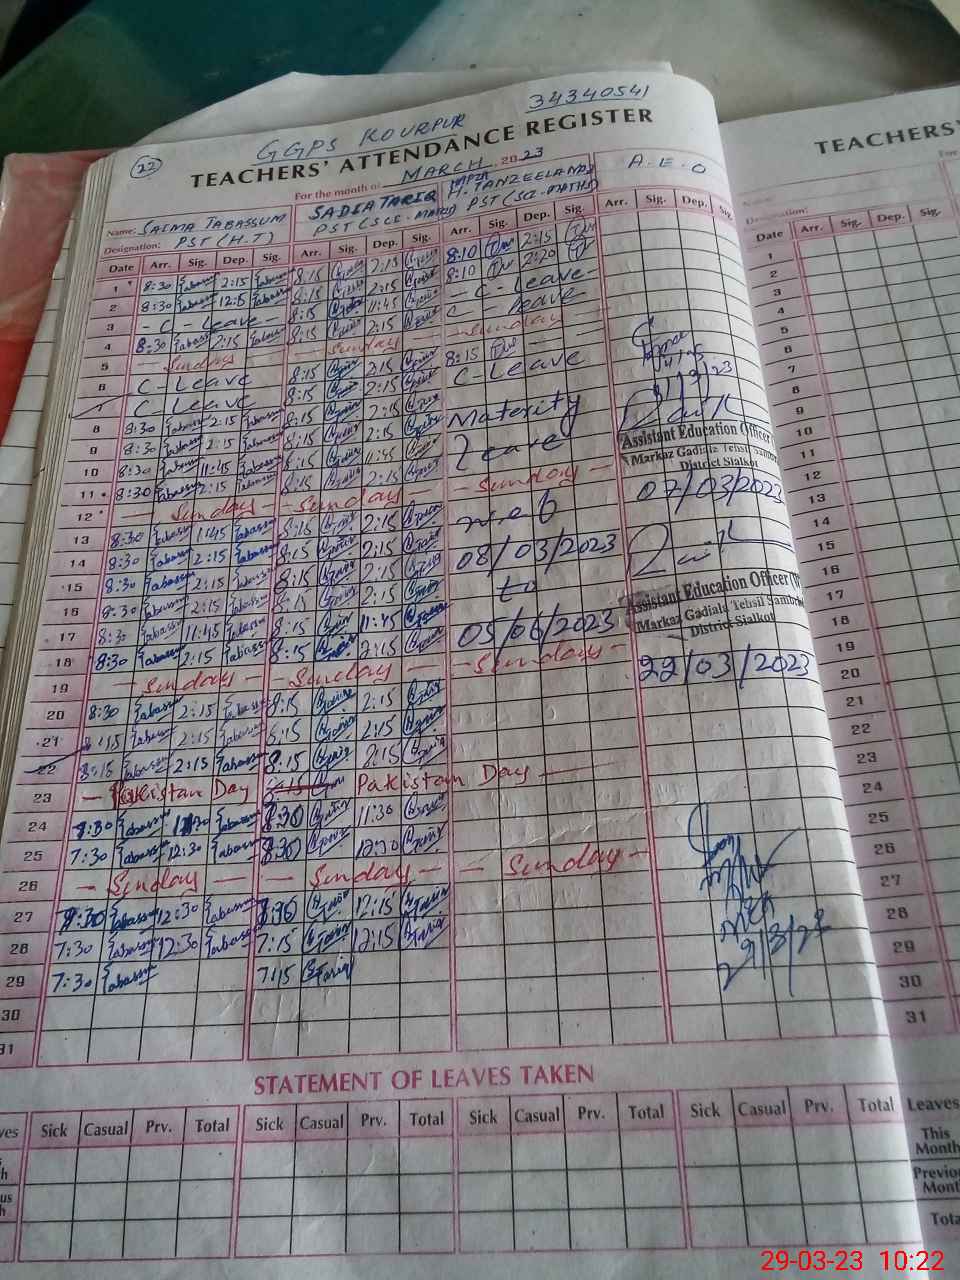 34340541
22 GGPS KOURPUR
TEACHERS' ATTENDANCE REGISTER
For the month of MARCH 2023
Name: SAIMA TABASSUM SADIA TARIQ H. TANZEELA A.E.O
Designation: PST (H.T) PST (SCI-MATH) PST (SCI-MATH)
Date Arr. Sig. Dep. Sig. Arr. Sig. Dep. Sig. Arr. Sig. Dep. Sig. Arr. Sig. Dep. Sig.
1 8:30 Tabassum 2:15 Tabassum 8:15 2:15 8:10 2:15
2 8:30 Tabassum 12:15 Tabassum 8:15 2:15 8:10 2:20
3 - C - Leave - 8:15 11:45 - C - Leave -
4 8:30 Tabassum 2:15 Tabassum 8:15 2:15 C - Leave
5 - Sunday - Sunday - Sunday -
6 C - Leave 8:15 2:15 8:15
7 C - Leave 8:15 2:15 C - Leave
8 8:30 Tabassum 2:15 Tabassum 8:15 2:15 Maternity
9 8:30 Tabassum 2:15 Tabassum 8:15 2:15 Leave
10 8:30 Tabassum 11:45 Tabassum 8:15 11:45
11 8:30 Tabassum 2:15 Tabassum 8:15 2:15
12 - Sunday - Sunday - Sunday -
13 8:30 Tabassum 1:45 Tabassum 8:15 2:15 w.e.f
14 8:30 Tabassum 2:15 Tabassum 8:15 2:15 08/03/2023
15 8:30 Tabassum 2:15 Tabassum 8:15 2:15 to
16 8:30 Tabassum 2:15 Tabassum 8:15 2:15
17 8:30 Tabassum 11:45 Tabassum 8:15 11:45 05/06/2023
18 8:30 Tabassum 2:15 Tabassum 8:15 2:15
19 - Sunday - Sunday - Sunday -
20 8:30 Tabassum 2:15 Tabassum 8:15 2:15
21 8:15 Tabassum 2:15 Tabassum 8:15 2:15
22 8:15 Tabassum 2:15 Tabassum 8:15 2:15
23 - Pakistan Day Pakistan Day -
24 8:30 Tabassum 11:30 Tabassum 8:30 11:30
25 7:30 Tabassum 12:30 Tabassum 8:30 12:30
26 - Sunday - Sunday - Sunday -
27 7:30 Tabassum 12:30 Tabassum 12:15 Tariq
28 7:30 Tabassum 12:30 Tabassum 7:15 Tariq 12:15 Tariq
29 7:30 Tabassum 7:15 Tariq
30
31
Assistant Education Officer
Markaz Gadiala Tehsil Sambrial
District Sialkot
07/03/2023
Assistant Education Officer (W
Markaz Gadiala Tehsil Sambrial
District Sialkot
22/03/2023
MEA
29/3/23
STATEMENT OF LEAVES TAKEN
Sick Casual Prv. Total Sick Casual Prv. Total Sick Casual Prv. Total Sick Casual Prv. Total
TEACHERS'
Name:
Designation:
Date Arr. Sig. Dep. Sig.
1
2
3
4
5
6
7
8
9
10
11
12
13
14
15
16
17
18
19
20
21
22
23
24
25
26
27
28
29
30
31
Leaves
This Month
Previous Month
Total
29-03-23 10:22